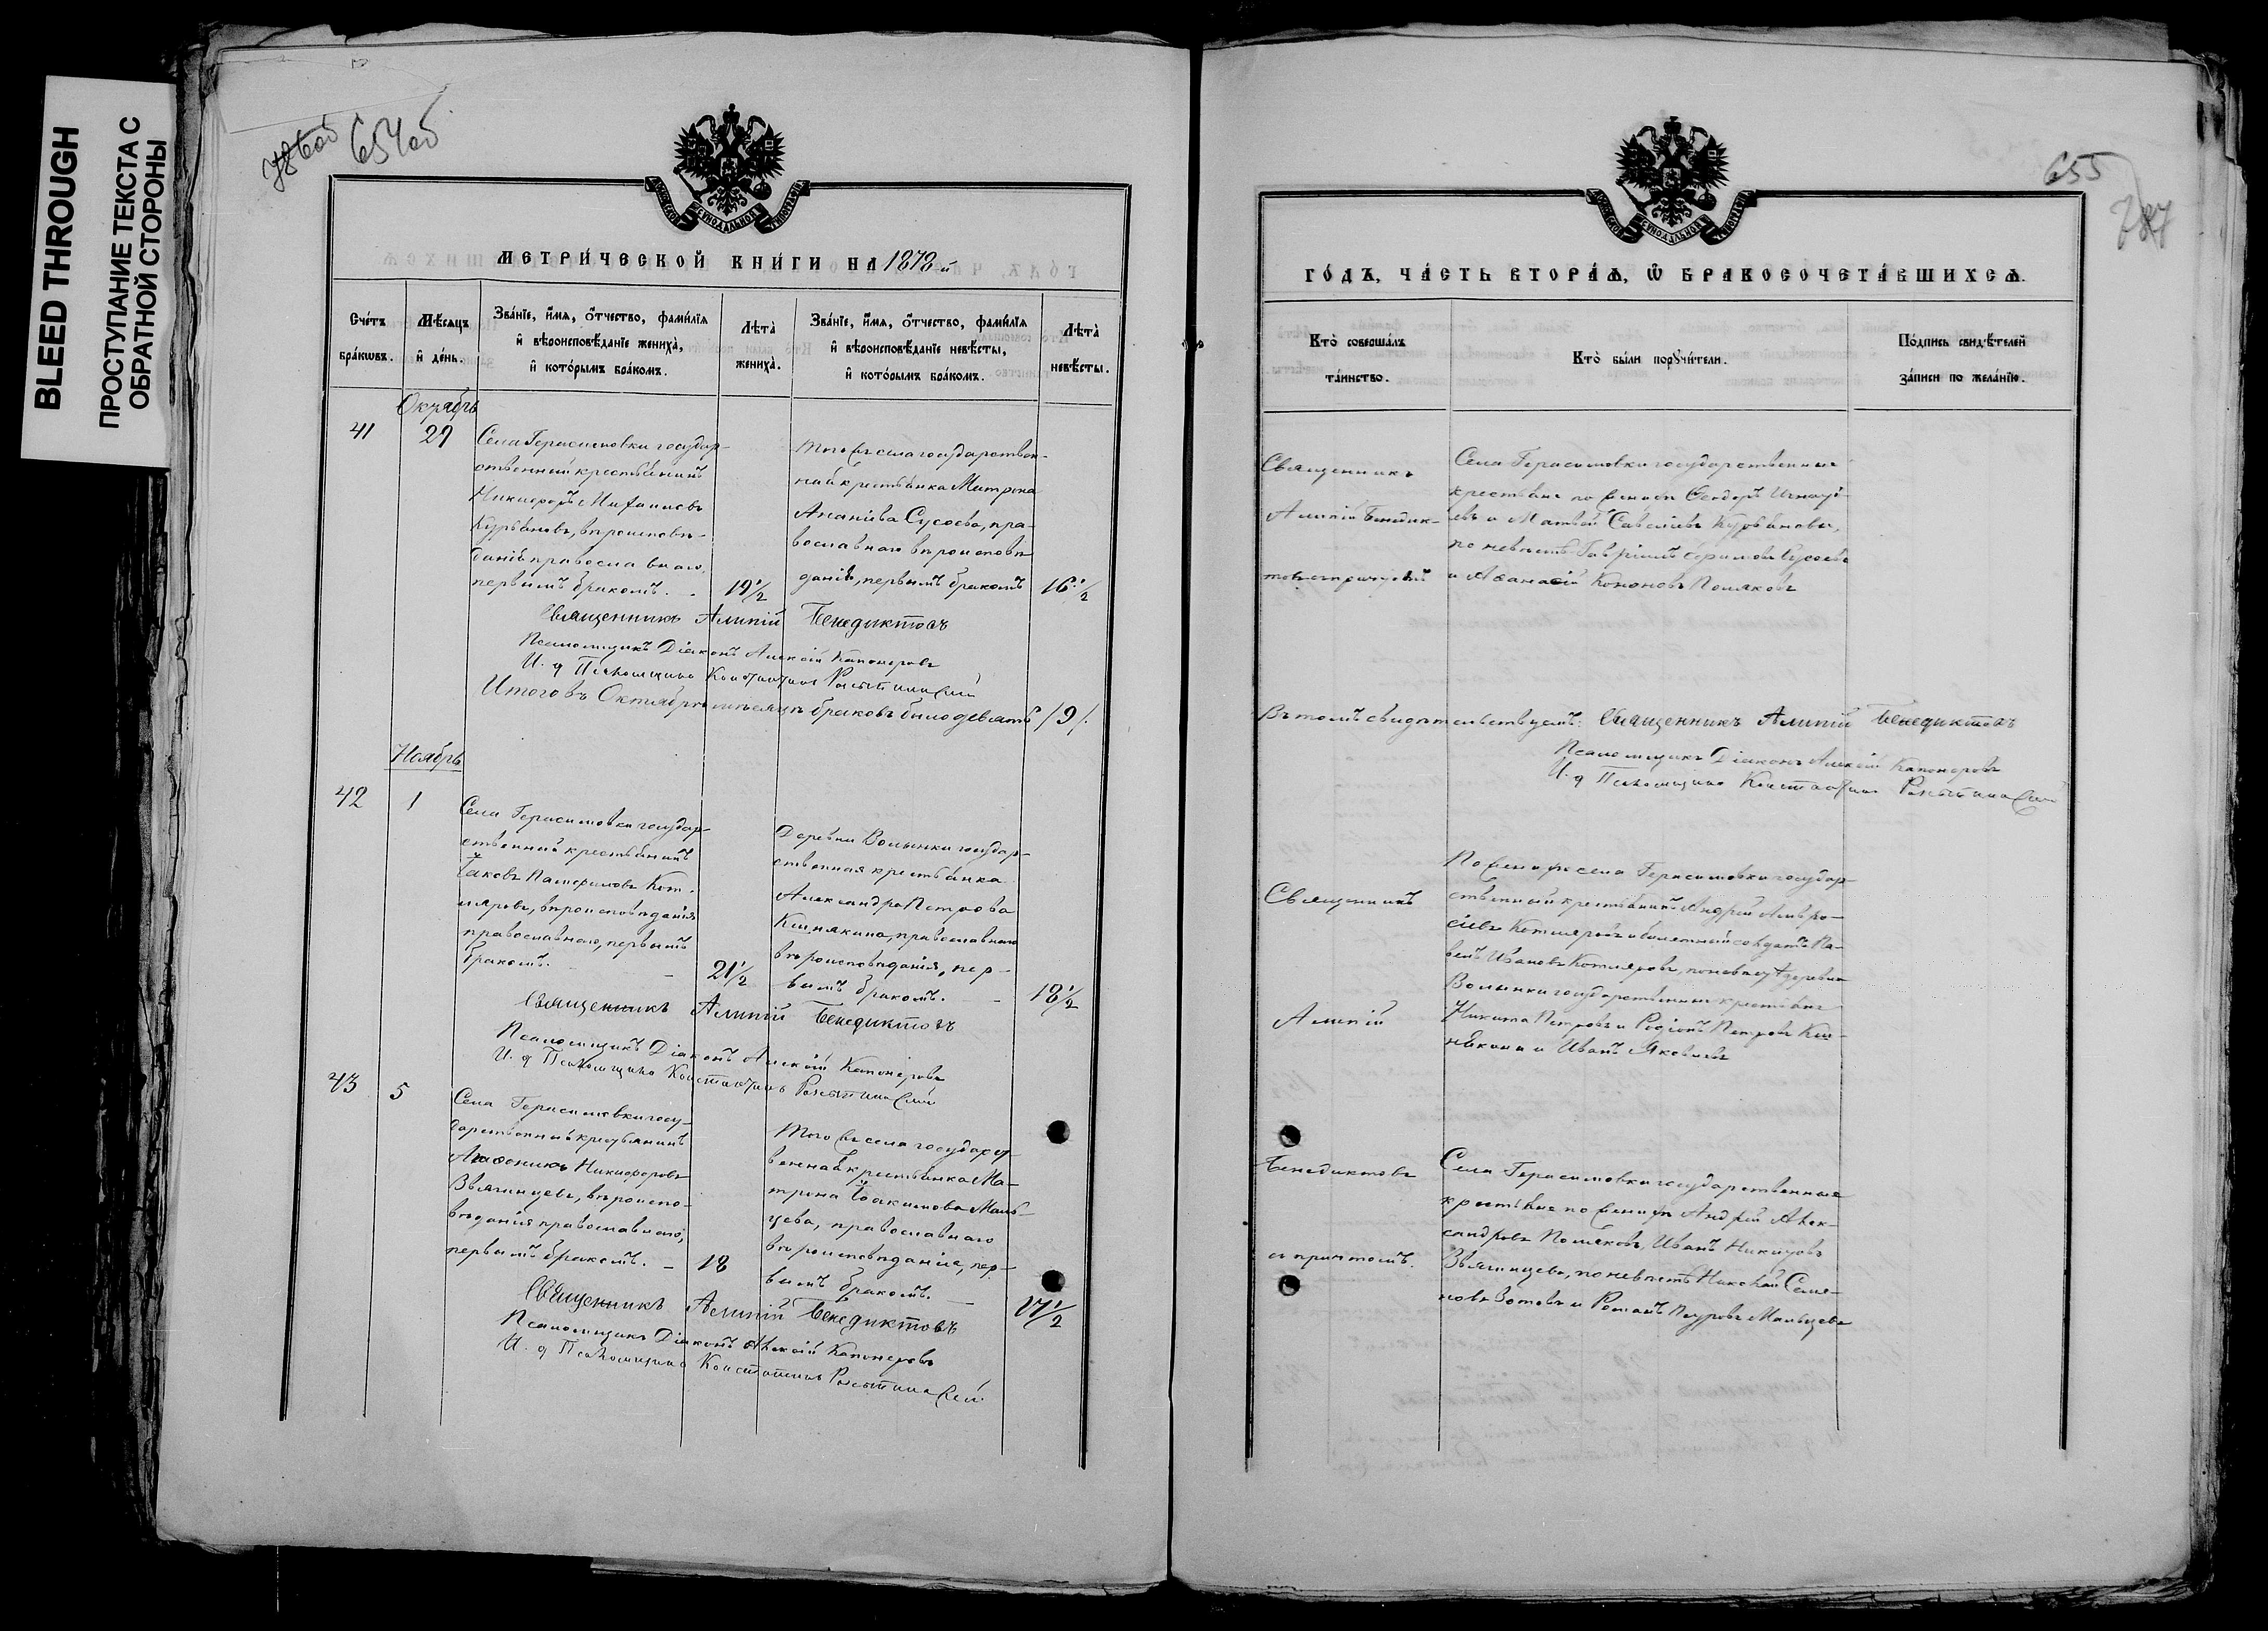 BLEED THROUGH
ПРОСТУПАНИЕ ТЕКСТА С
ОБРАТНОЙ СТОРОНЫ
654об
МЕТРИ́ЧЕСКОЙ КНИ́ГИ НА 1878й
Сче́тъ
бра́кωвъ.
Мѣ́сяцъ
и҆ де́нь.
Зва́нїе, и҆́мя, ѻ҆́тчество, фами́лїя
и҆ вѣроисповѣ́данїе жениха̀,
и҆ кото́рымъ бра́комъ.
Лѣта̀
жениха̀.
Зва́нїе, и҆́мя, ѻ҆́тчество, фами́лїя
и҆ вѣроисповѣ́данїе невѣ́сты,
и҆ кото́рымъ бра́комъ.
Лѣта̀
невѣ́сты.
Октябрь
41
29
Села Герасимовки государ-
ственный крестьянинъ
Никифоръ
Курбановъ, вѣроисповѣ-
данія православнаго,
первымъ бракомъ.
19½
Того же села государствен-
ная крестьянка Матрона
Ананіева Сусоева, пра-
вославнаго вѣроисповѣ
данія, первымъ бракомъ
16½
Священникъ Алипій Бенедиктовъ
Псаломщикъ Діаконъ Алексій Капонеровъ
И. д Псаломщика Константинъ
Итого въ Октябрѣ мѣсяцѣ браковъ было девять /9/.
Ноябрь
42
1
Села Герасимовки государ-
ственный крестьянинъ
Іаковъ Памфиловъ Кот-
ляровъ, вѣроисповѣданія
православнаго, первымъ
бракомъ.
21½
Деревни Волынки государ-
ственная крестьянка
Александра Петрова
Княжкина, православнаго
вѣроисповѣданія, пер-
вымъ бракомъ.
18½
Священникъ Алипій Бенедиктовъ
Псаломщикъ Діаконъ Алексій Капонеровъ
И. д Псаломщика Константинъ
43
5
Села Герасимовки госу-
дарственный крестьянинъ
Агафоникъ Никифоровъ
Звягинцевъ, вѣроиспо-
вѣданія православнаго,
первымъ бракомъ.
18
Того же села государст
венная крестьянка Ма-
трона Іоакимова Маль-
цева, православнаго
вѣроисповѣданія, пер-
вымъ бракомъ.
17½
Священникъ Алипій Бенедиктовъ
Псаломщикъ Діаконъ Алексій Капонеровъ
И. д Псаломщика Константинъ
655
787
ГО́ДЪ, ЧА́СТЬ ВТОРА́Я, Ѽ БРАКОСОЧЕТА́ВШИХСЯ.
Кто̀ соверша́лъ
та́инство.
Кто̀ бы́ли порꙋчи́тели.
По́дпись свидѣ́телей
за́писи по жела́нїю.
Священникъ
Алипій Бенедик-
товъ съ причтомъ
Села Герасимовки государственные
крестьяне по женихѣ Феодоръ
и Матвей Савеліевъ Курбановы,
по невѣстѣ Гавріилъ Сусоевъ
и Афанасій Кононовъ Поляковъ
Въ томъ свидѣтельствуемъ: Священникъ Алипій Бенедиктовъ
Псаломщикъ Діаконъ Алексій Капонеровъ
И. д Псаломщика Константинъ
Священникъ
Алипій
По женихѣ села Герасимовки государ-
ственный крестьянинъ Андрей Амвро-
сіевъ Котляровъ и билетный солдатъ Па-
велъ Ивановъ Котляровъ, по невѣстѣ деревни
Волынки государственные крестьяне
Никита Петровъ и Родіонъ Петровъ
и Иванъ Яковлевъ
Бенедиктовъ
съ причтомъ.
Села Герасимовки государственные
крестьяне по женихѣ Андрей Алек-
сандровъ Поляковъ, Иванъ
Звягинцевъ, по невѣстѣ Николай Семе-
новъ Зотовъ и Романъ Петровъ Мальцевъ